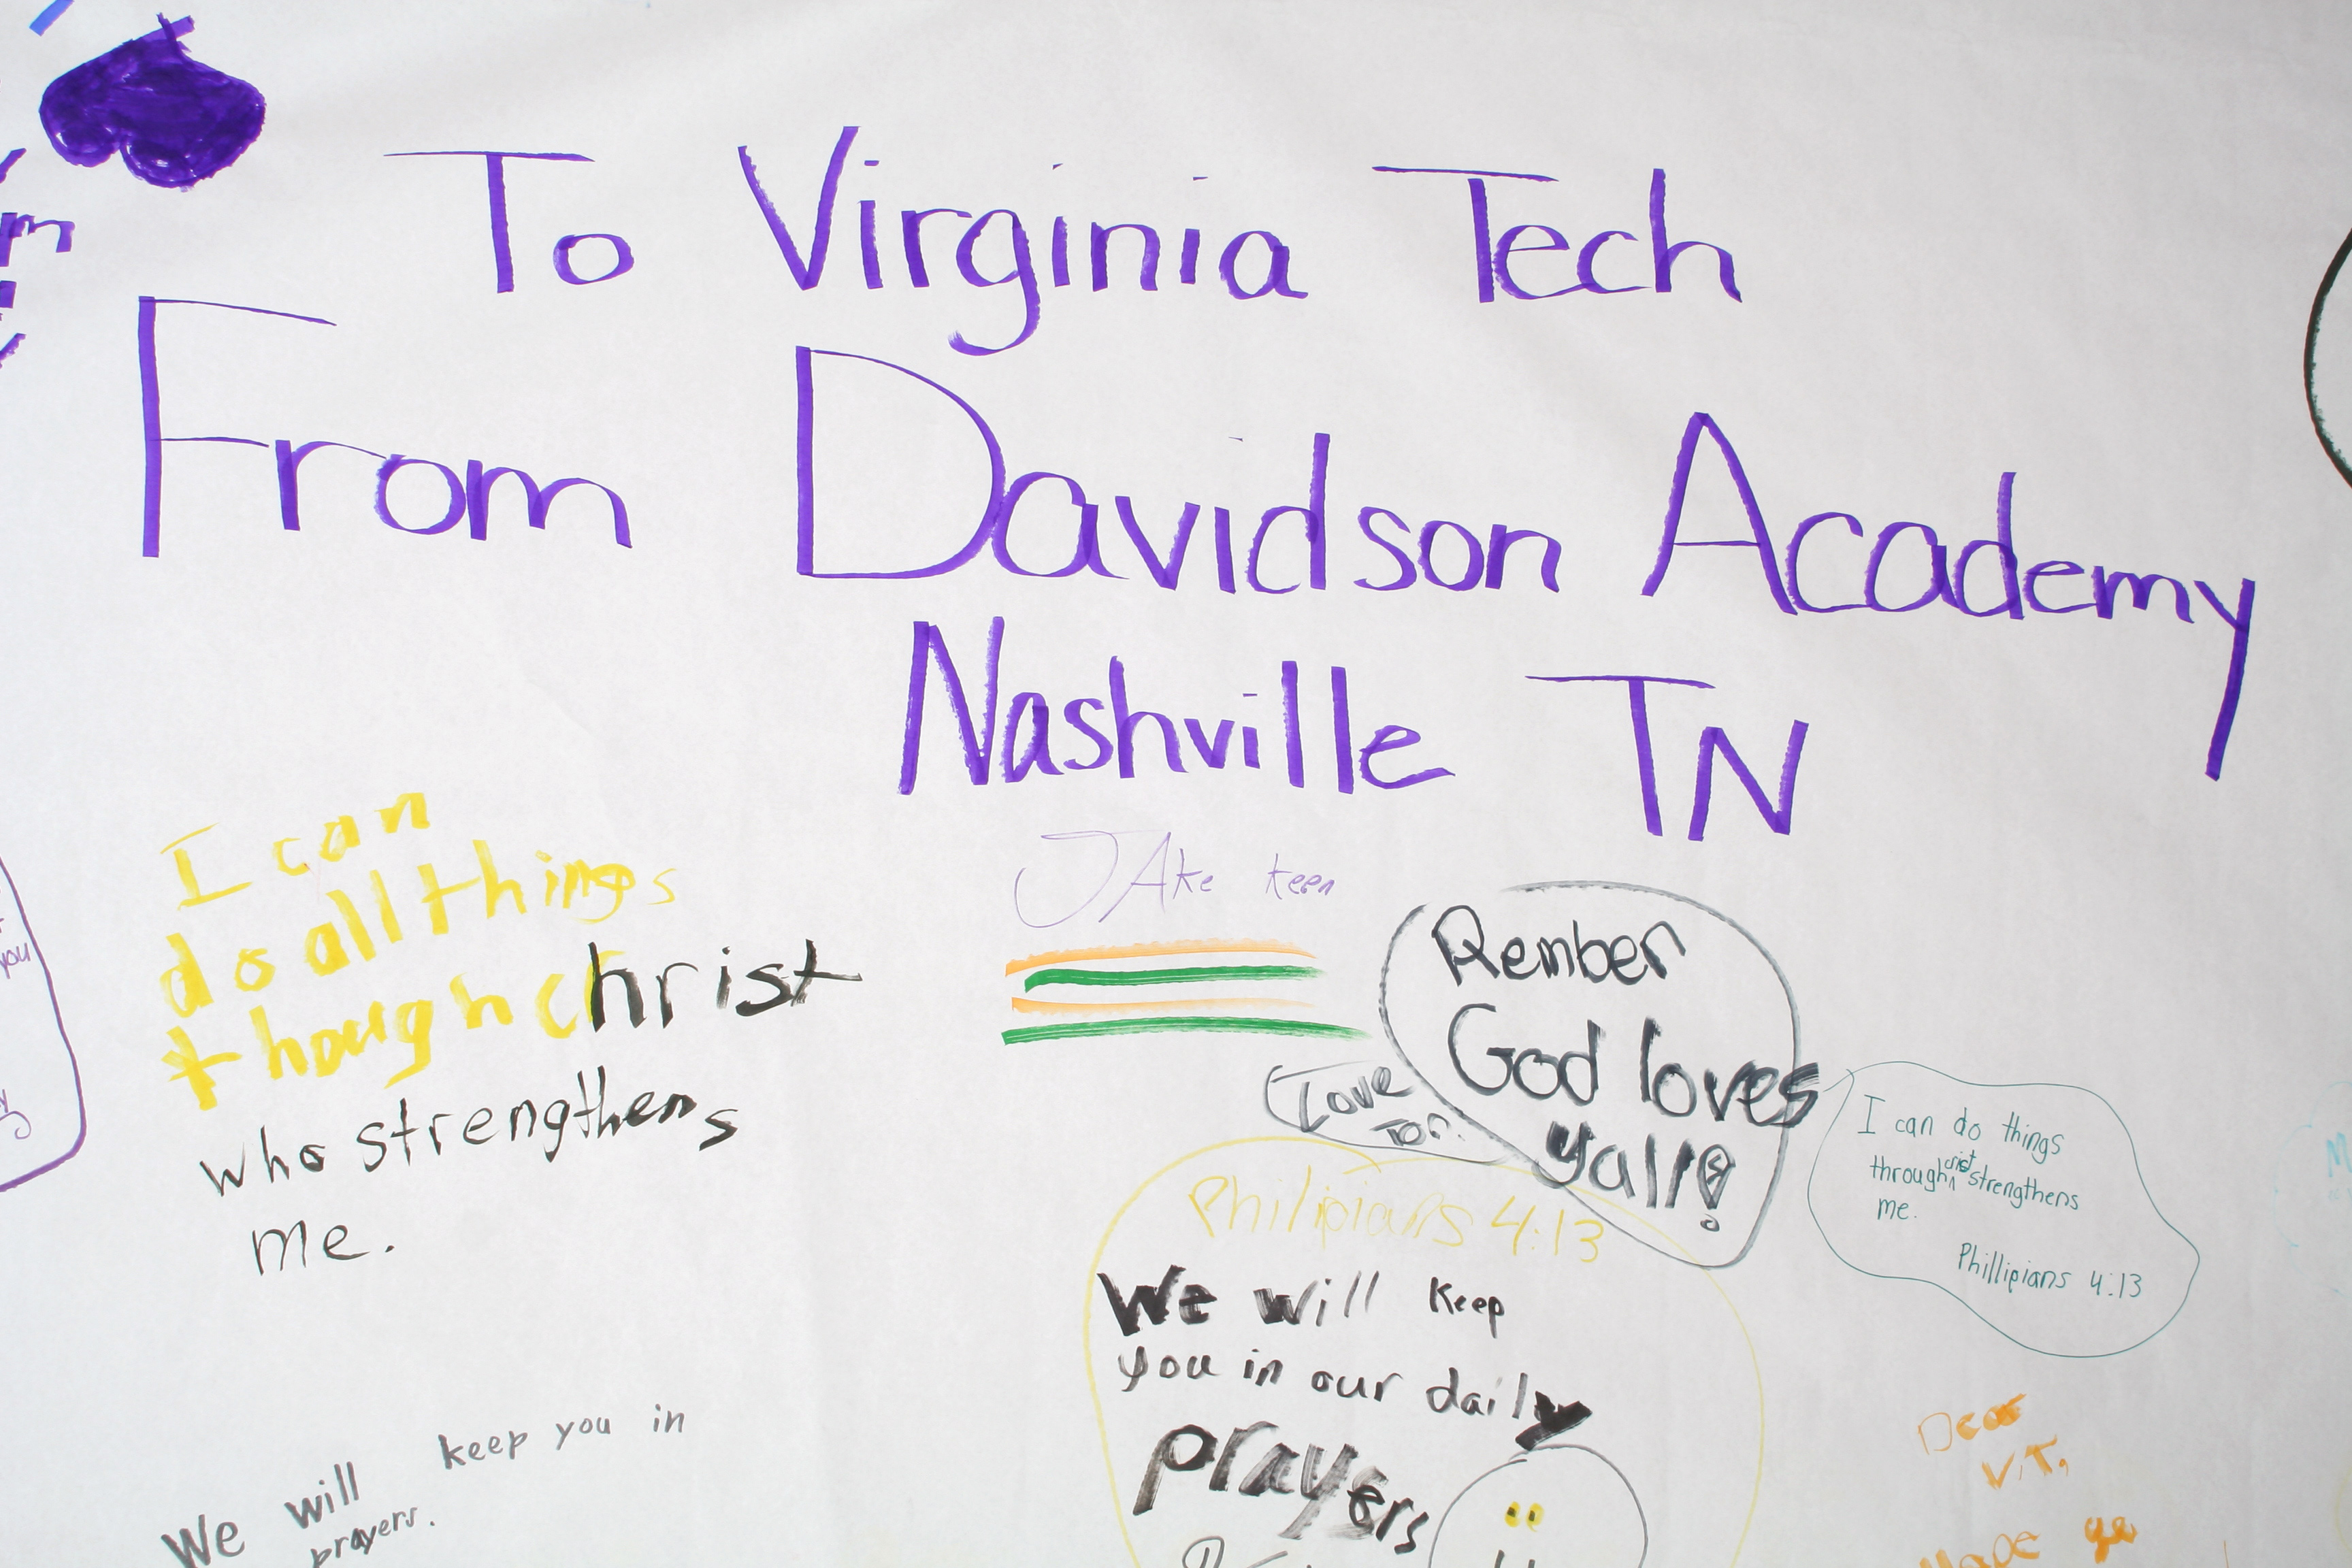 To Virginia Tech
From Davidson Academy
Nashville TN
I can
do all things
though christ
who strengthens
me.
JAke keen
Rember
God loves
yall!
Love
I can do things
through crist strengthens
me.
Phillipians 4:13
Philipians 4:13
We will keep
you in our daily
prayers
We will keep you in
prayers.
Dear
V.T,
you